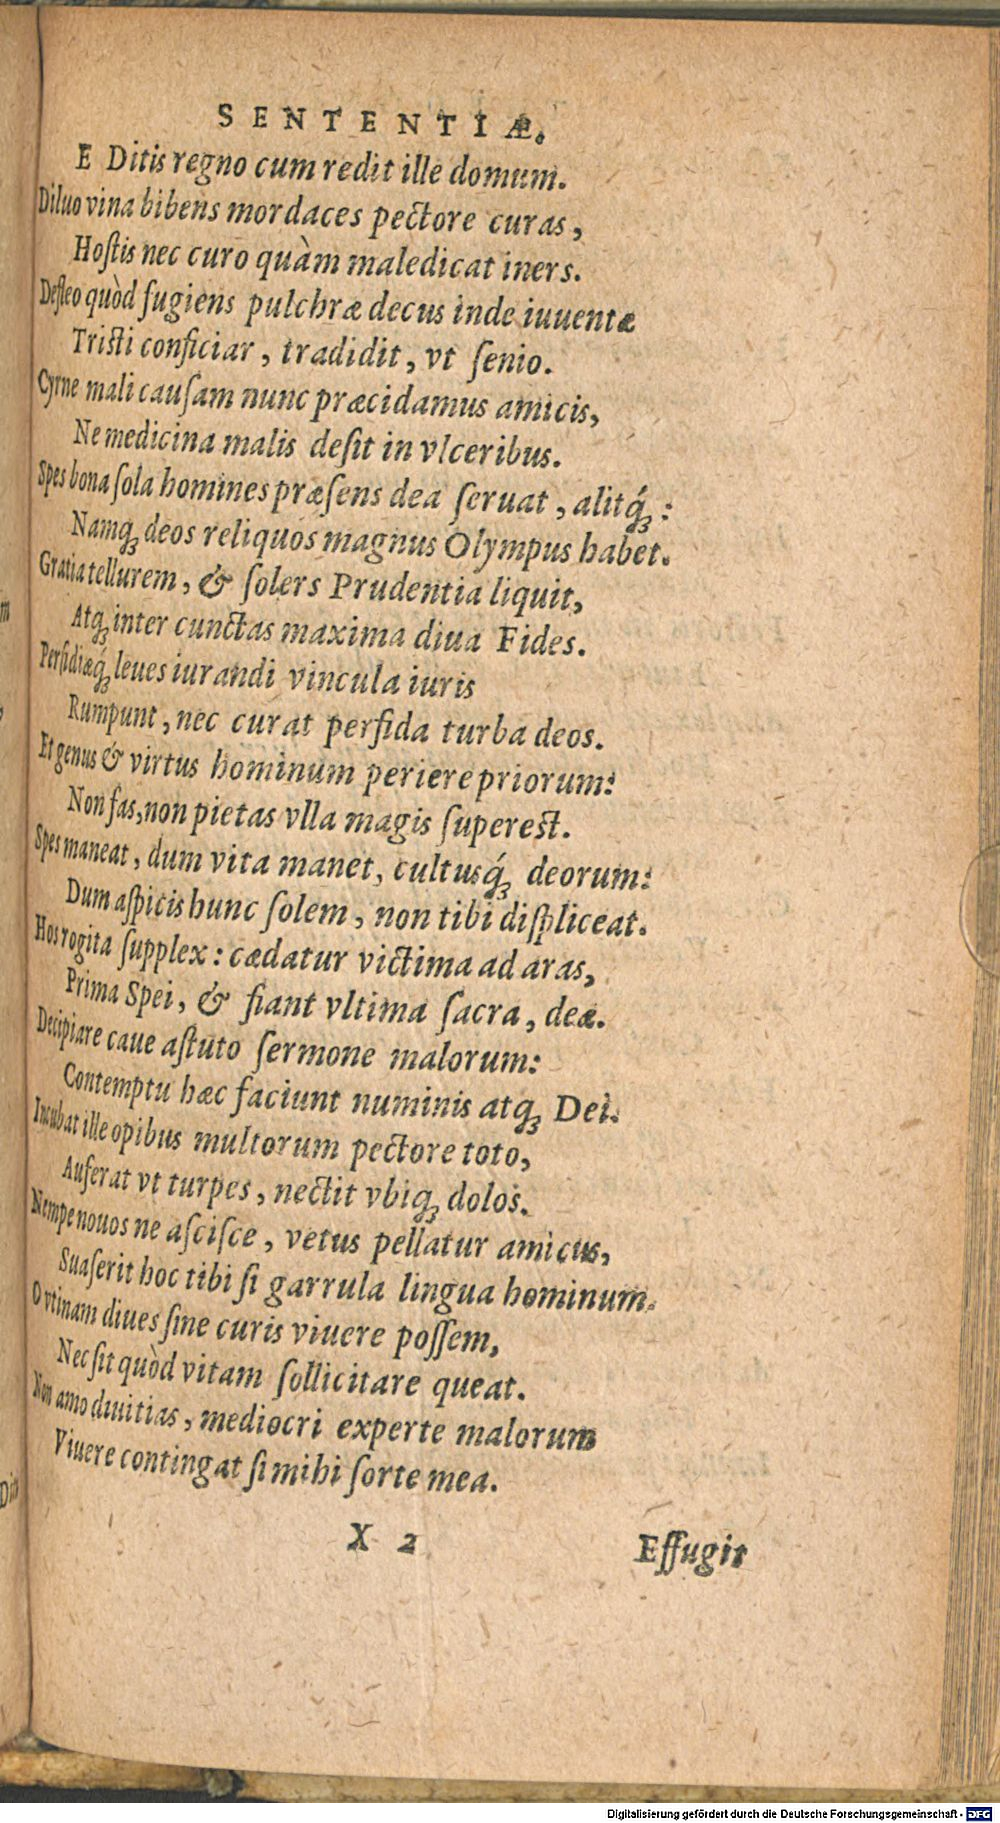 SENTENTIÆ.
E Ditis regno cum redit ille domum.
Diluo vina bibens mordaces pectore curas,
Hoſtis nec curo quàm maledicat iners.
Defleo quòd fugiens pulchræ decus inde iuuentæ
Triſti conficiar, tradidit, vt ſenio.
Cyrne mali cauſam nunc præcidamus amicis,
Ne medicina malis deſit in vlceribus.
Spes bona ſola homines præſens dea ſeruat, alitq́ꝫ:
Namqꝫ deos reliquos magnus Olympus habet.
Gratia tellurem, & ſolers Prudentia liquit,
Atqꝫ inter cunctas maxima diua Fides.
Perfidiæq́ꝫ leues iurandi vincula iuris
Rumpunt, nec curat perfida turba deos.
Et genus & virtus hominum periere priorum:
Non fas, non pietas vlla magis ſupereſt.
Spes maneat, dum vita manet, cultusq́ꝫ deorum:
Dum aſpicis hunc ſolem, non tibi diſpliceat.
Hos rogita ſupplex: cædatur victima ad aras,
Prima Spei, & fiant vltima ſacra, deæ.
Decipiare caue aſtuto ſermone malorum:
Contemptu hæc faciunt numinis atqꝫ Dei.
Incubat ille opibus multorum pectore toto,
Auferat vt turpes, nectit vbiqꝫ dolos.
Nempe nouos ne aſciſce, vetus pellatur amicus,
Suaſerit hoc tibi ſi garrula lingua hominum.
O vtinam diues ſine curis viuere poſſem,
Nec ſit quòd vitam ſollicitare queat.
Non amo diuitias, mediocri experte malorum
Viuere contingat ſi mihi ſorte mea.
X 2
Effugit
Digitalisierung gefördert durch die Deutsche Forschungsgemeinschaft - DFG